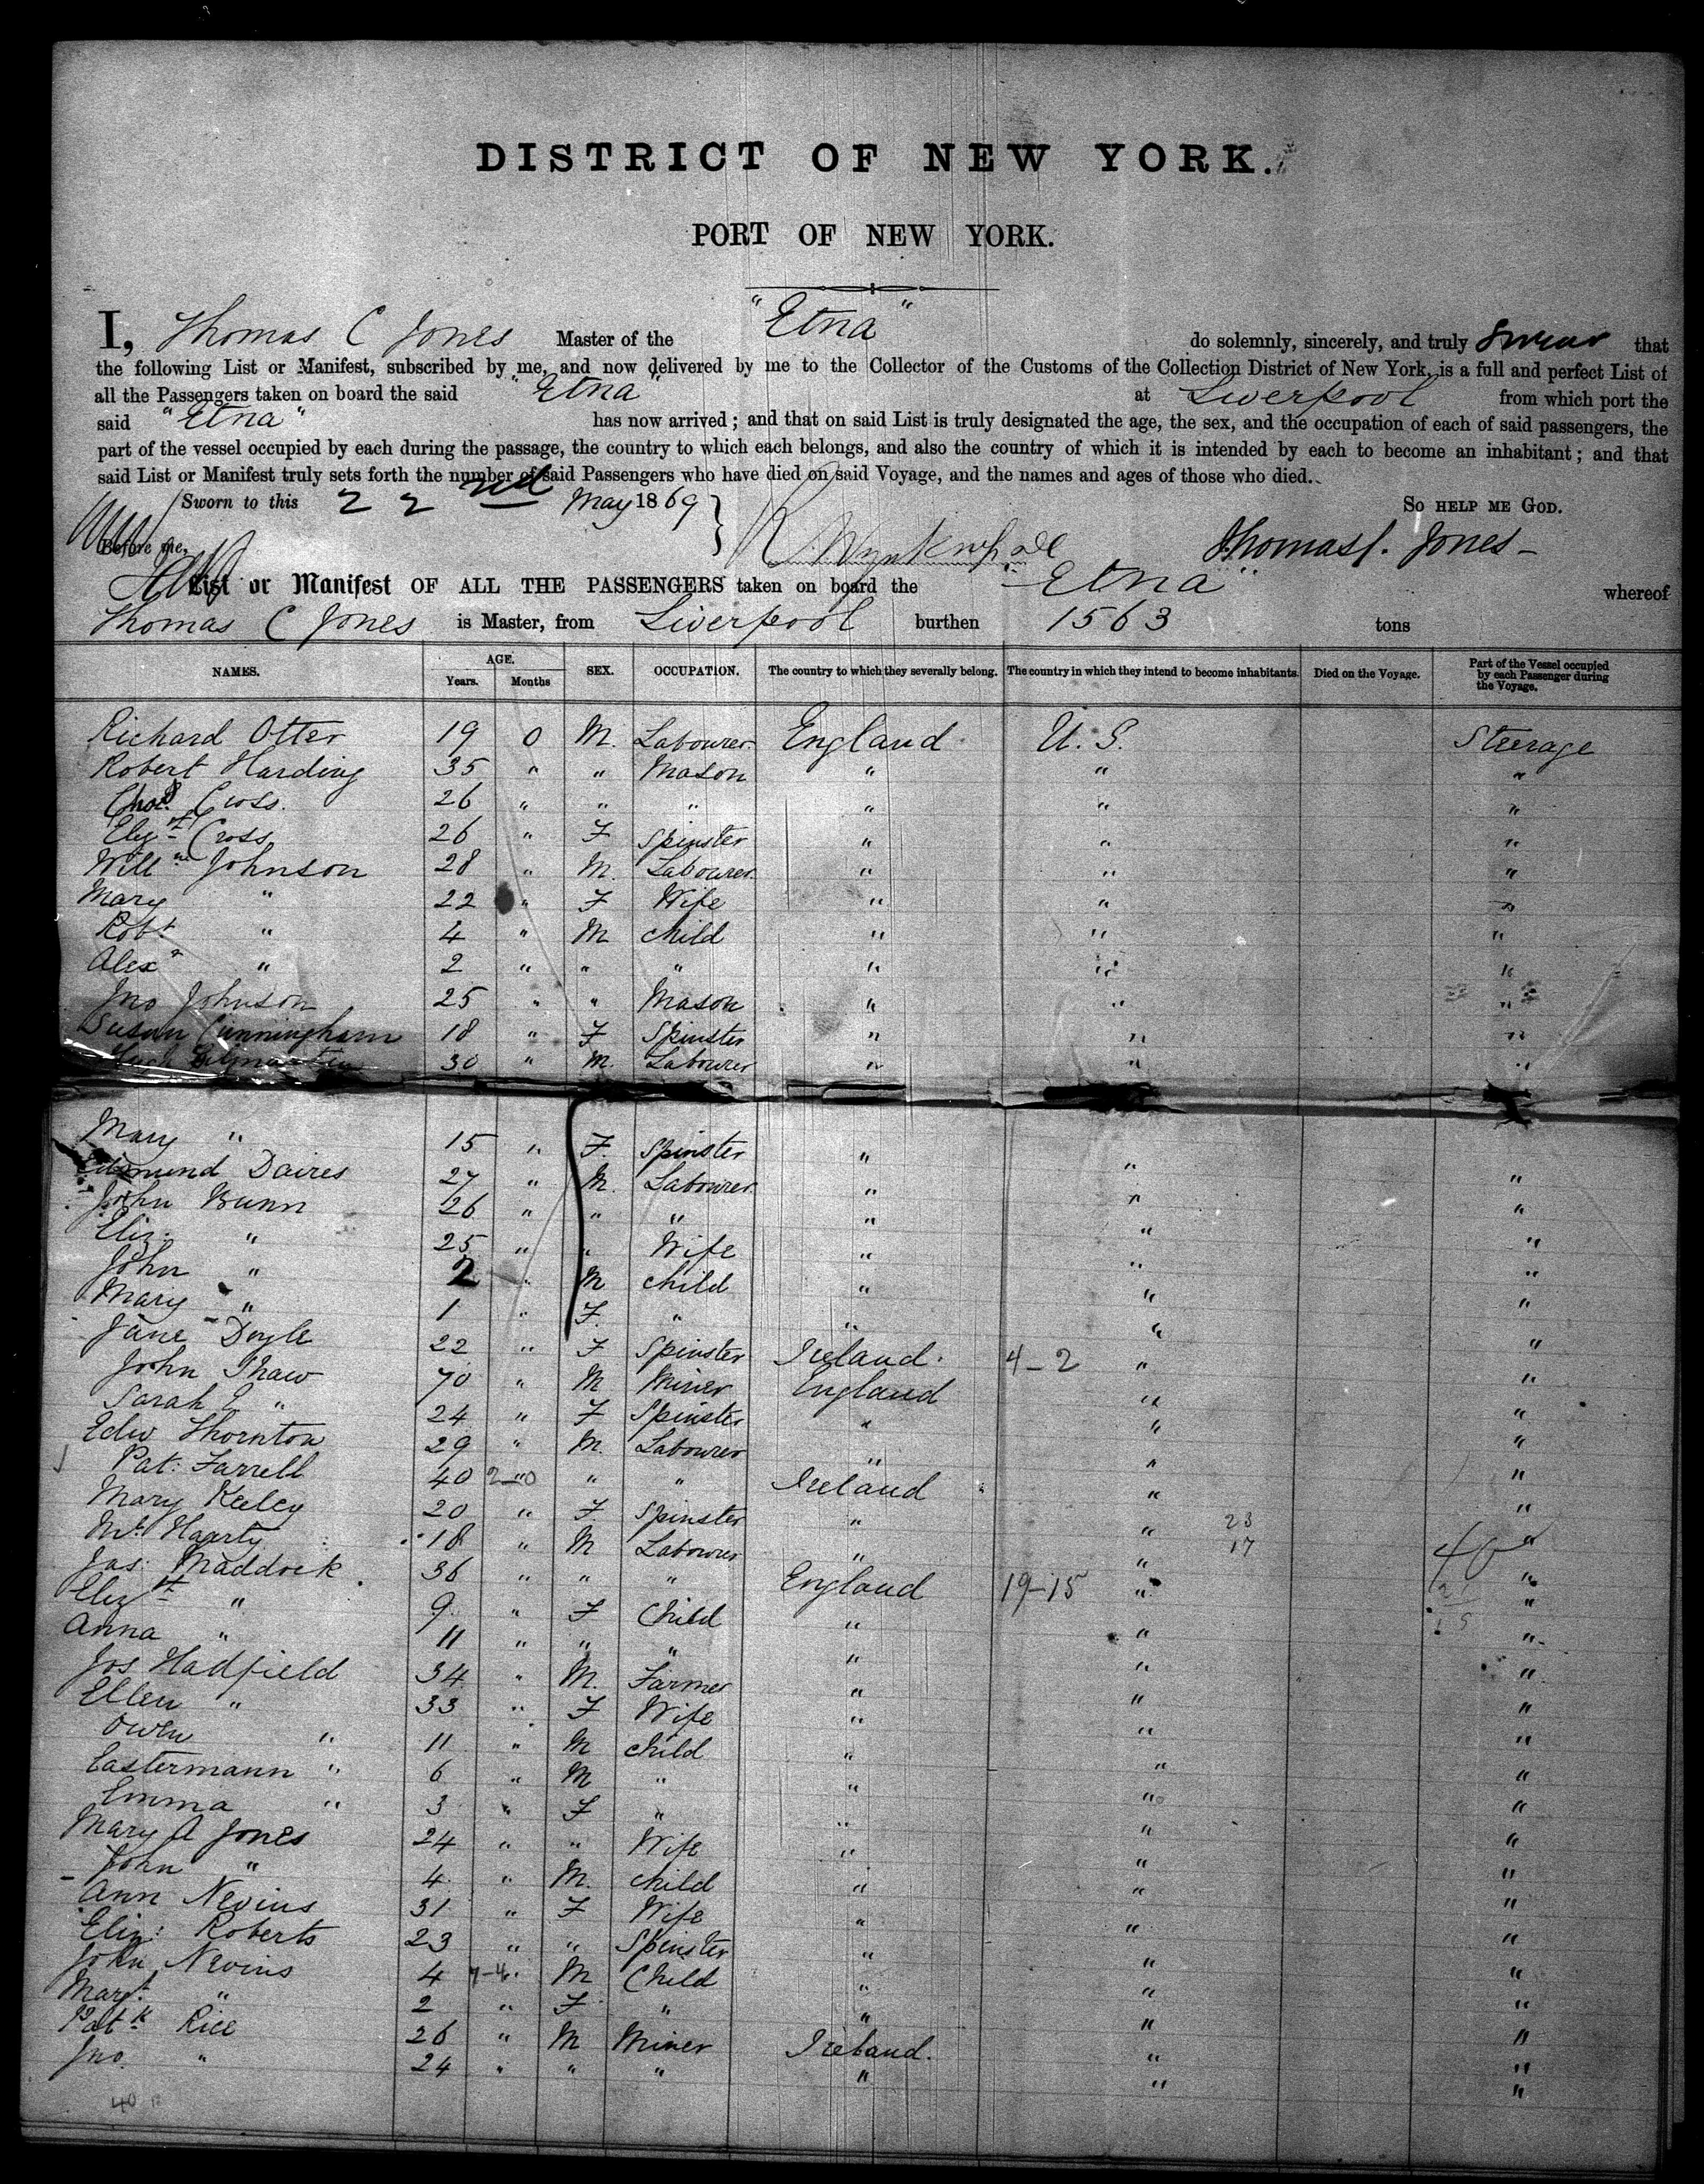 DISTRICT OF NEW YORK.
PORT OF NEW YORK.
I, Thomas C Jones Master of the "Etna" do solemnly, sincerely, and truly swear that
the following List or Manifest, subscribed by me, and now delivered by me to the Collector of the Customs of the Collection District of New York, is a full and perfect List of
all the Passengers taken on board the said "Etna" at Liverpool from which port the
said "Etna" has now arrived; and that on said List is truly designated the age, the sex, and the occupation of each of said passengers, the
part of the vessel occupied by each during the passage, the country to which each belongs, and also the country of which it is intended by each to become an inhabitant; and that
said List or Manifest truly sets forth the number of said Passengers who have died on said Voyage, and the names and ages of those who died.
Sworn to this 22nd May 1869 So HELP ME GOD.
Before me, Thomas C. Jones
List or Manifest OF ALL THE PASSENGERS taken on board the "Etna" whereof
Thomas C Jones is Master, from Liverpool burthen 1563 tons
NAMES. AGE. Years. Months SEX. OCCUPATION. The country to which they severally belong. The country in which they intend to become inhabitants. Died on the Voyage. Part of the Vessel occupied by each Passenger during the Voyage.
Richard Otter 19 0 M. Labourer England U.S. Steerage
Robert Harding 35 " " Mason " " "
Chas. Cross. 26 " " " " " "
Eliz.t Cross 26 " F Spinster " " "
Will.m Johnson 28 " M. Labourer " " "
Mary " 22 " F Wife " " "
Robt " 4 " M child " " "
Alexr " 2 " " " " " "
Jno Johnson 25 " " Mason " " "
Susan Cunningham 18 " F Spinster " " "
30 " M. Labourer " " "
Mary " 15 " F. Spinster " "
Edmund Daires 27 " M. Labourer " " "
John Bunn 26 " " " " " "
Eliz: " 25 " " Wife " " "
John " 2 " M child " " "
Mary " 1 " F. " " " "
Jane Doyle 22 " F Spinster Ireland. 4-2 " "
John Thaw 70 " M Miner England " "
Sarah E " 24 " F Spinster " " "
Edw Thornton 29 " M. Labourer " " "
Pat: Farrell 40 2-0 " " Ireland " "
Mary Keeley 20 " F. Spinster " " 23 "
Mt. Hagerty 18 " M Labourer " " 17 40 "
Jas: Maddock 36 " " " England 19-15 " "
Elizt " 9 " F Child " " "
Anna " 11 " " " " " "
Jos Hadfield 34 " M. Farmer " " "
Ellen " 33 " F Wife " " "
Owen " 11 " M child " " "
Eastermann " 6 " M " " " "
Emma " 3 " F " " " "
Mary A Jones 24 " " Wife " " "
John " 4 " M. child " " "
Ann Nevins 31 " F Wife " " "
Eliz: Roberts 23 " " Spinster " " "
John Nevins 4 7-4 M Child " " "
Margt. " 2 " F " " " "
Patk Rice 26 " M Miner Ireland. " "
Jno. " 24 " " " " " "
40